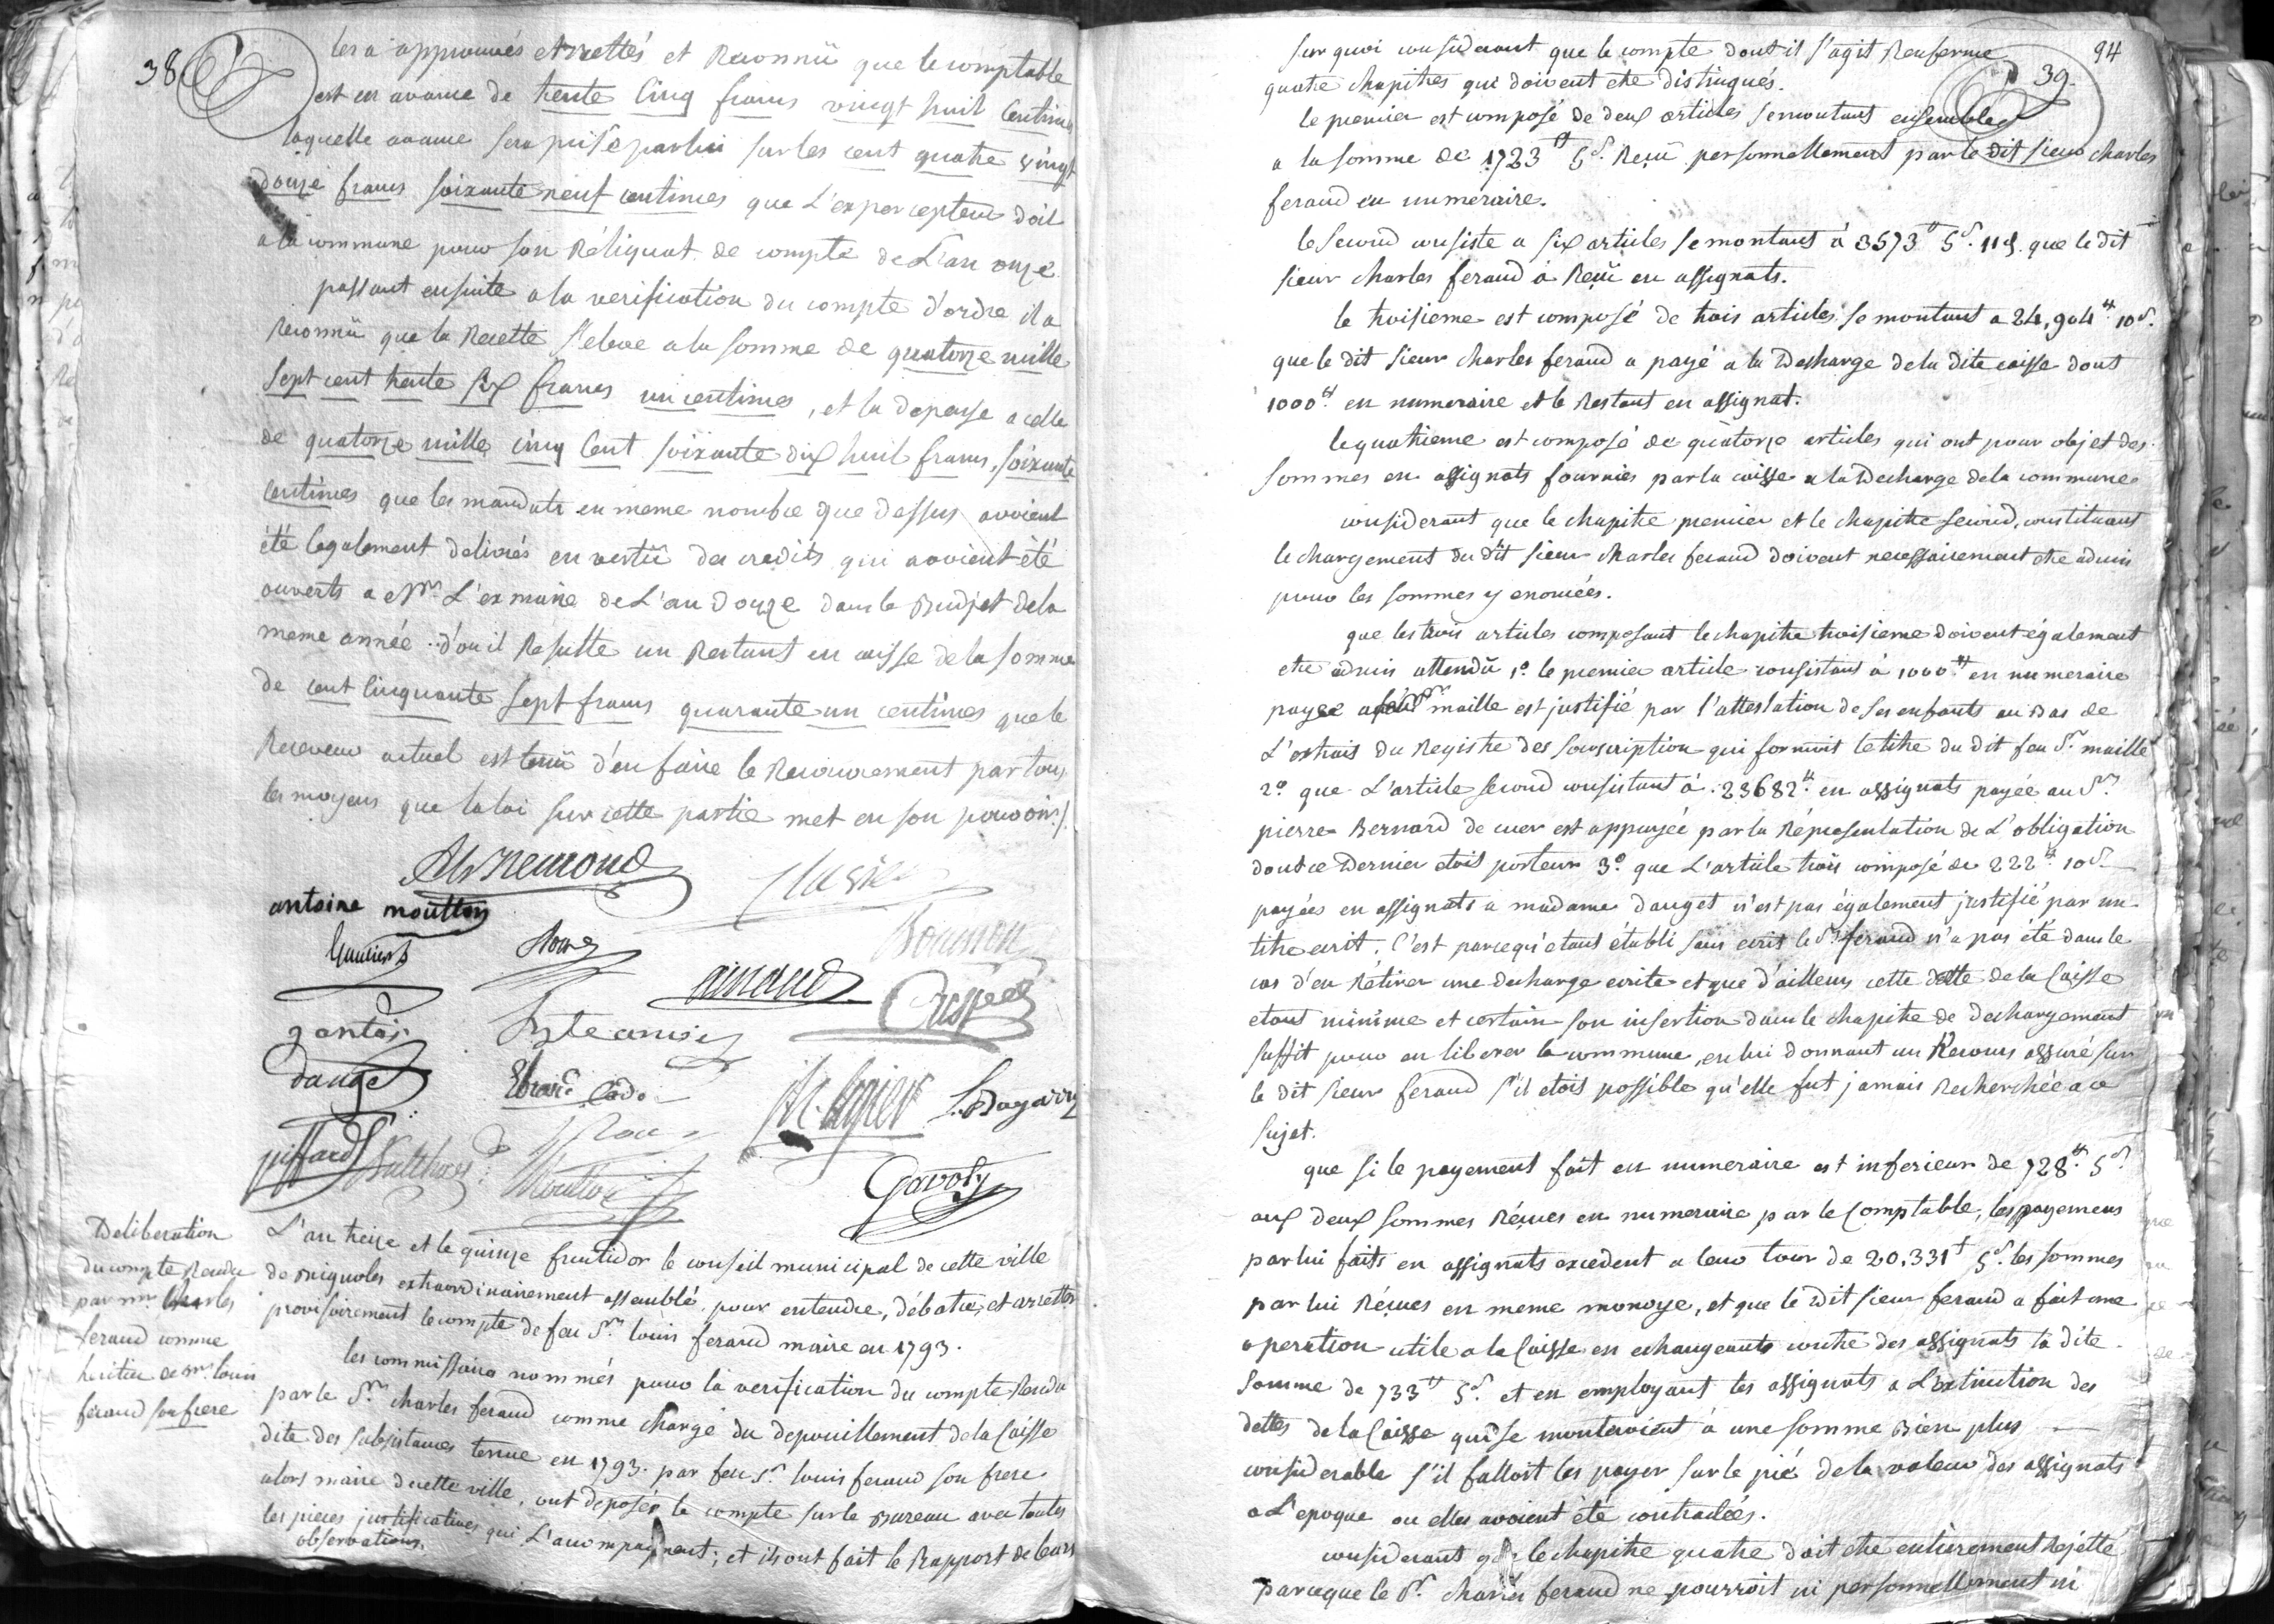 38
les a approuvés et arrettés et Reconnü que le comptable
est en avance de trente Cinq francs vingt huit Centimes
laquelle avance sera prise par lui sur les cent quatre vingt
douze francs soixante neuf centimes que L'expercepteur doit
a la commune pour son Réliquat de compte de L'an onze.
passant ensuite a la verification du compte d'ordre il a
Reconnü que la Recette s'eleve a la somme de quatorze mille
Sept cent trente six francs un centimes, et la depense a celle
de quatorze mille cinq Cent soixante dix huit francs, soixante
Centimes que les mandats en meme nombre que dessus avoient
été legalement delivrés en vertü des credits qui avoient été
ouverts a Mr. L'ex maire de L'an Douze dans le Budjet de la
meme année. d'ou il Resulte un Restant en caisse de la somme
de cent Cinquante sept francs quarante un centimes que le
Receveur actuel est tenü d'en faire le Recouvrement par tous
les moyens que la loi sur cette partie met en son pouvoir./.
antoine moutton
arnaud
gantois
danget
piffard
Gavoty
Deliberation
du compte Rendu
par mr. Charles
feraud comme
heritier de mr. louis
feraud son frere
L'an treize et le quinze fructidor le conseil municipal de cette ville
de Brignoles extraordinairement assemblé, pour entendre, débatre, et arretter
provisoirement le compte de feu Sr. louis feraud maire en 1793.
les commissaires nommés pour la verification du compte Rendu
par le Sr. charles feraud comme chargé du depouillement de la Caisse
dite des subsistances tenue en 1793. par feu Sr. louis feraud son frere
alors maire de cette ville, ont deposés le compte sur le Bureau avec toutes
les pieces justificatives qui L'accompagnent; et ils ont fait le Rapport de leurs
observations.
94
39.
sur quoi considerant que le compte dont il s'agit Renferme
quatre chapitres qui doivent etre distingués.
le premier est composé de deux articles se montants ensemble
a la somme de 1723tt 5s. Reçu personnellement par le dit sieur charles
feraud en numeraire.
le second consiste a six articles se montants à 3573tt 5s. 11d. que le dit
sieur charles feraud à Reçu en assignats.
le troisieme est composé de trois articles se montant a 24,904tt 10s.
que le dit sieur charles feraud a payé a la Decharge de la dite caisse dont
1000tt en numeraire et le Restant en assignat.
le quatrieme est composé de quatorze articles qui ont pour objet des
sommes en assignats fournies par la caisse a la Decharge de la commune
considerant que le chapitre premier et le chapitre second, constituant
le chargement du dit sieur charles feraud doivent necessairement etre admis
pour les sommes y enoncées.
que les trois articles composant le chapitre troisieme doivent également
etre admis attendü 1o. le premier article consistant à 1000tt en numeraire
payée a feu Sr maille est justifié par l'attestation de ses enfants au Bas de
L'extrait du Registre des souscription qui formoit le titre du dit feu Sr. maille
2o. que L'article second consistant à 23682tt en assignats payée au Sr.
pierre Bernard de cuer est appuyée par la Répresentation de L'obligation
dont ce Dernier etoit porteur 3o. que L'article trois composé de 222tt 10s
payées en assignats a madame danget n'est pas également justifié par un
titre ecrit. C'est parcequ'etant établi sans ecrit le Sr. feraud n'a pas été dans le
cas d'en Rétirer une decharge ecrite et que d'ailleurs cette dette de la Caisse
etant minime et certain son insertion dans le chapitre de dechargement
suffit pour en liberer la commune, en lui donnant un Recours assuré sur
le dit sieur feraud s'il etoit possible qu'elle fut jamais Recherchée a ce
sujet.
que si le payement fait en numeraire est inferieur de 728tt 5s.
aux deux sommes Réçues en numeraire par le Comptable, les payemens
par lui faits en assignats excedent a leur tour de 20,331tt 5s. les sommes
par lui Réçues en meme monoye, et que le dit sieur feraud a fait une
operation utile a la Caisse en echangeants contre des assignats la dite
somme de 733tt 5s. et en employant les assignats a L'extinction des
dettes de la Caisse qui se monteroient à une somme Bien plus
considerable s'il falloit les payer sur le pié de la valeur des assignats
a L'epoque ou elles avoient été contractées.
considerant que le chapitre quatre doit etre entierement Rejetté
parceque le Sr. charles feraud ne pourroit ni personnellement ni